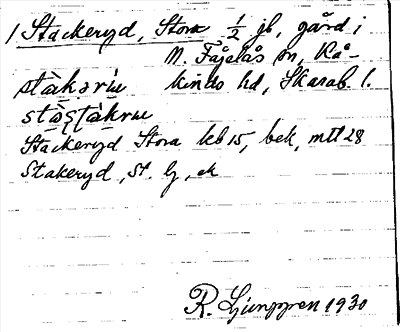 1. Stackeryd, Stora 1/2 jb, gård i
N. Fågelås sn, Kå-
stàkəri̵u kinds hd, Skarab. l.
stòstàkru
Stackeryd Stora kb 15, bek, mtl 28
Stakeryd, St. lj, ek
R. Ljunggren 1930